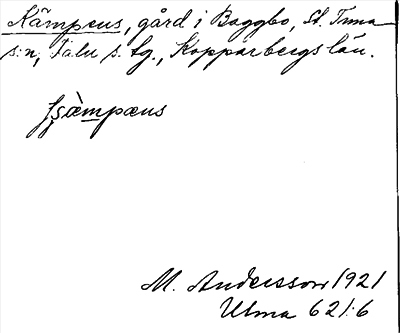 Kämpeus, gård i Baggbo, St. Tuna
s:n, Falu s. tg., Kopparbergs län.
M. Andersson 1921
Ulma 621:6